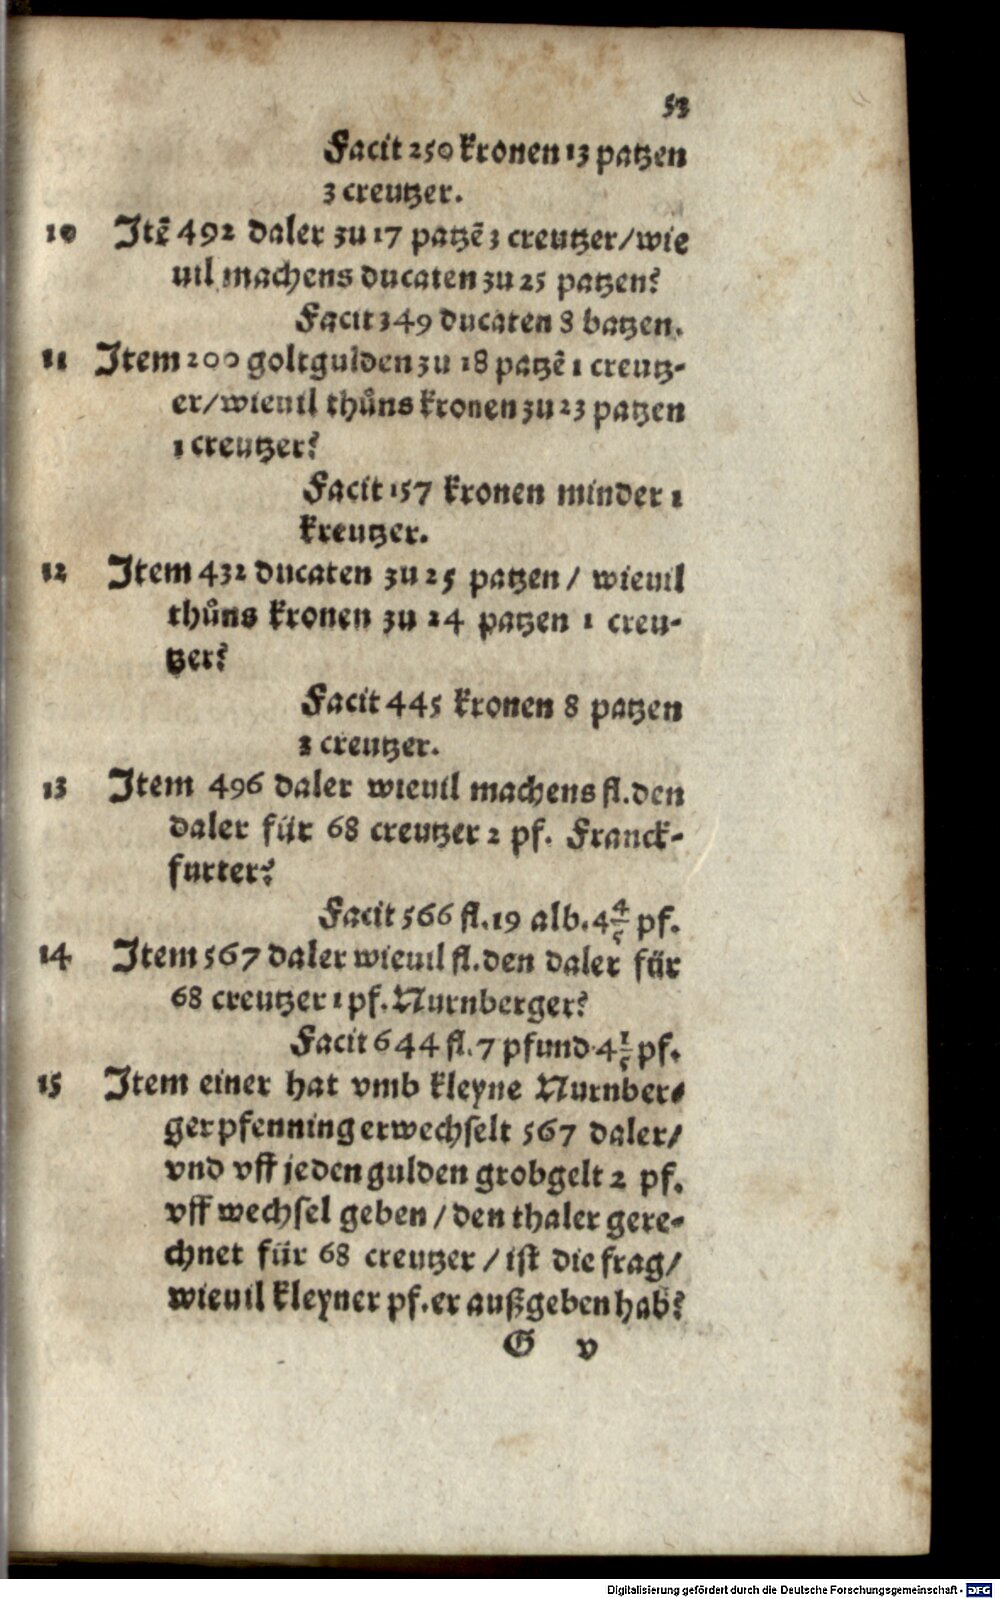 53
Facit 250 kronen 13 patzen
3 creutzer.
10 Jtẽ 492 daler zu 17 patzẽ 3 creutzer/wie
uil machens ducaten zu 25 patzen?
Facit 349 ducaten 8 batzen.
11 Jtem 200 goltgulden zu 18 patzẽ 1 creutz-
er/wieuil thůns kronen zu 23 patzen
1 creutzer?
Facit 157 kronen minder 1
kreutzer.
12 Jtem 432 ducaten zu 25 patzen / wieuil
thůns kronen zu 24 patzen 1 creu-
tzer?
Facit 445 kronen 8 patzen
3 creutzer.
13 Jtem 496 daler wieuil machens fl. den
daler für 68 creutzer 2 pf. Franck-
furter?
Facit 566 fl. 19 alb. 4 4/5 pf.
14 Jtem 567 daler wieuil fl. den daler für
68 creutzer 1 pf. Nurnberger?
Facit 644 fl. 7 pfund 4 1/5 pf.
15 Jtem einer hat vmb kleyne Nurnber-
ger pfenning erwechselt 567 daler/
vnd vff jeden gulden grobgelt 2 pf.
vff wechsel geben / den thaler gere-
chnet für 68 creutzer / ist die frag/
wieuil kleyner pf. er außgeben hab?
G v
Digitalisierung gefördert durch die Deutsche Forschungsgemeinschaft - DFG